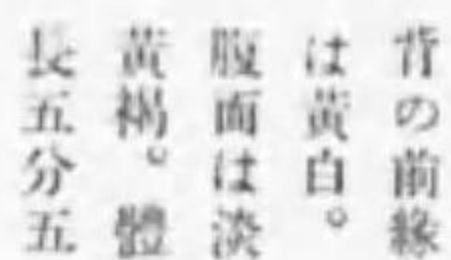 背の前緣
は黃白。
腹面は淡
黃褐。體
長五分五